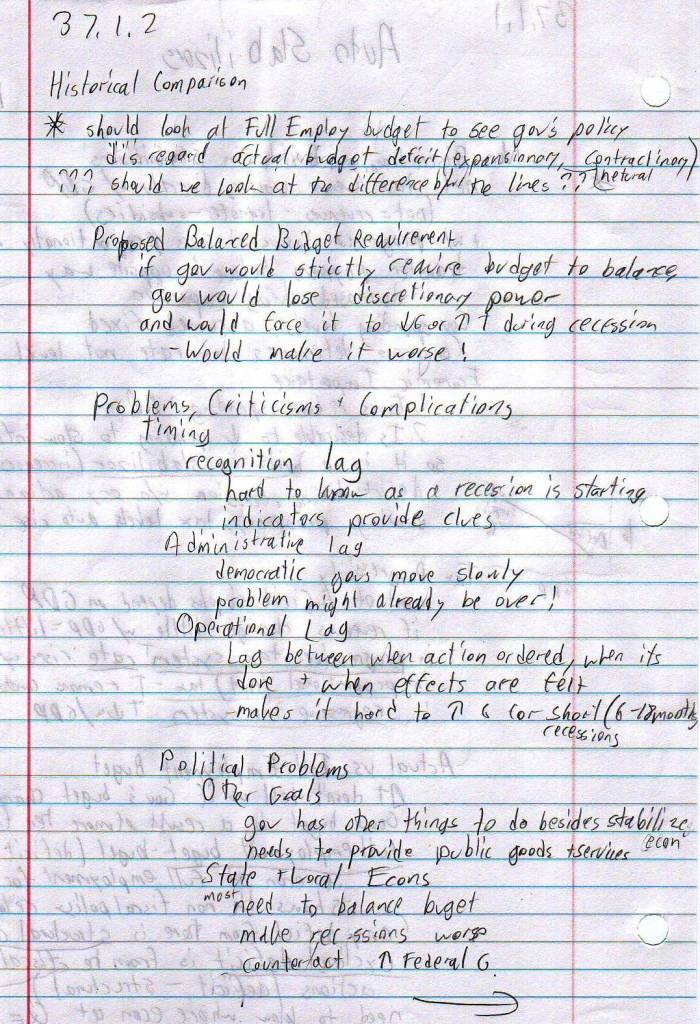 37.1.2
Historical Comparison
* should look at Full Employ budget to see gov's policy
disregard actual budget deficit (expansionary, contractinory)
??? should we look at the difference b/t the lines ?? (netural
Proposed Balanced Budget Requirement
if gov would strictly require budget to balance,
gov would lose discretionary power
and would force it to ↓G or ↑T during recession
- Would make it worse!
Problems, Criticisms + Complications
timing
recognition lag
hard to know as a recession is starting
indicators provide clues
Administrative lag
democratic govs move slowly
problem might already be over!
Operational Lag
Lag between when action ordered, when its
done + when effects are felt
-makes it hard to ↑ G for short (6-18months)
recessions
Political Problems
Other Goals
gov has other things to do besides stabilize
econ
needs to provide public goods +services
State +Local Econs
most need to balance buget
make recessions worse
counterfact ↑ Federal G.